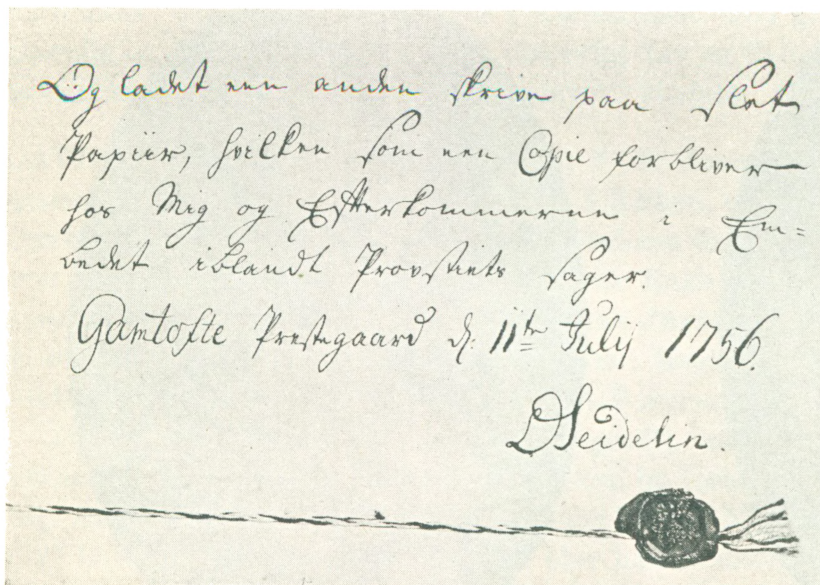 Og ladet een anden skrive paa slet
Papiir, hvilken som een Copie forbliver
hos Mig og Efterkommerne i Em=
bedet iblandt Provstiets sager.
Gamtofte Prestegaard d: 11te Julij 1756.
DSeidelin.